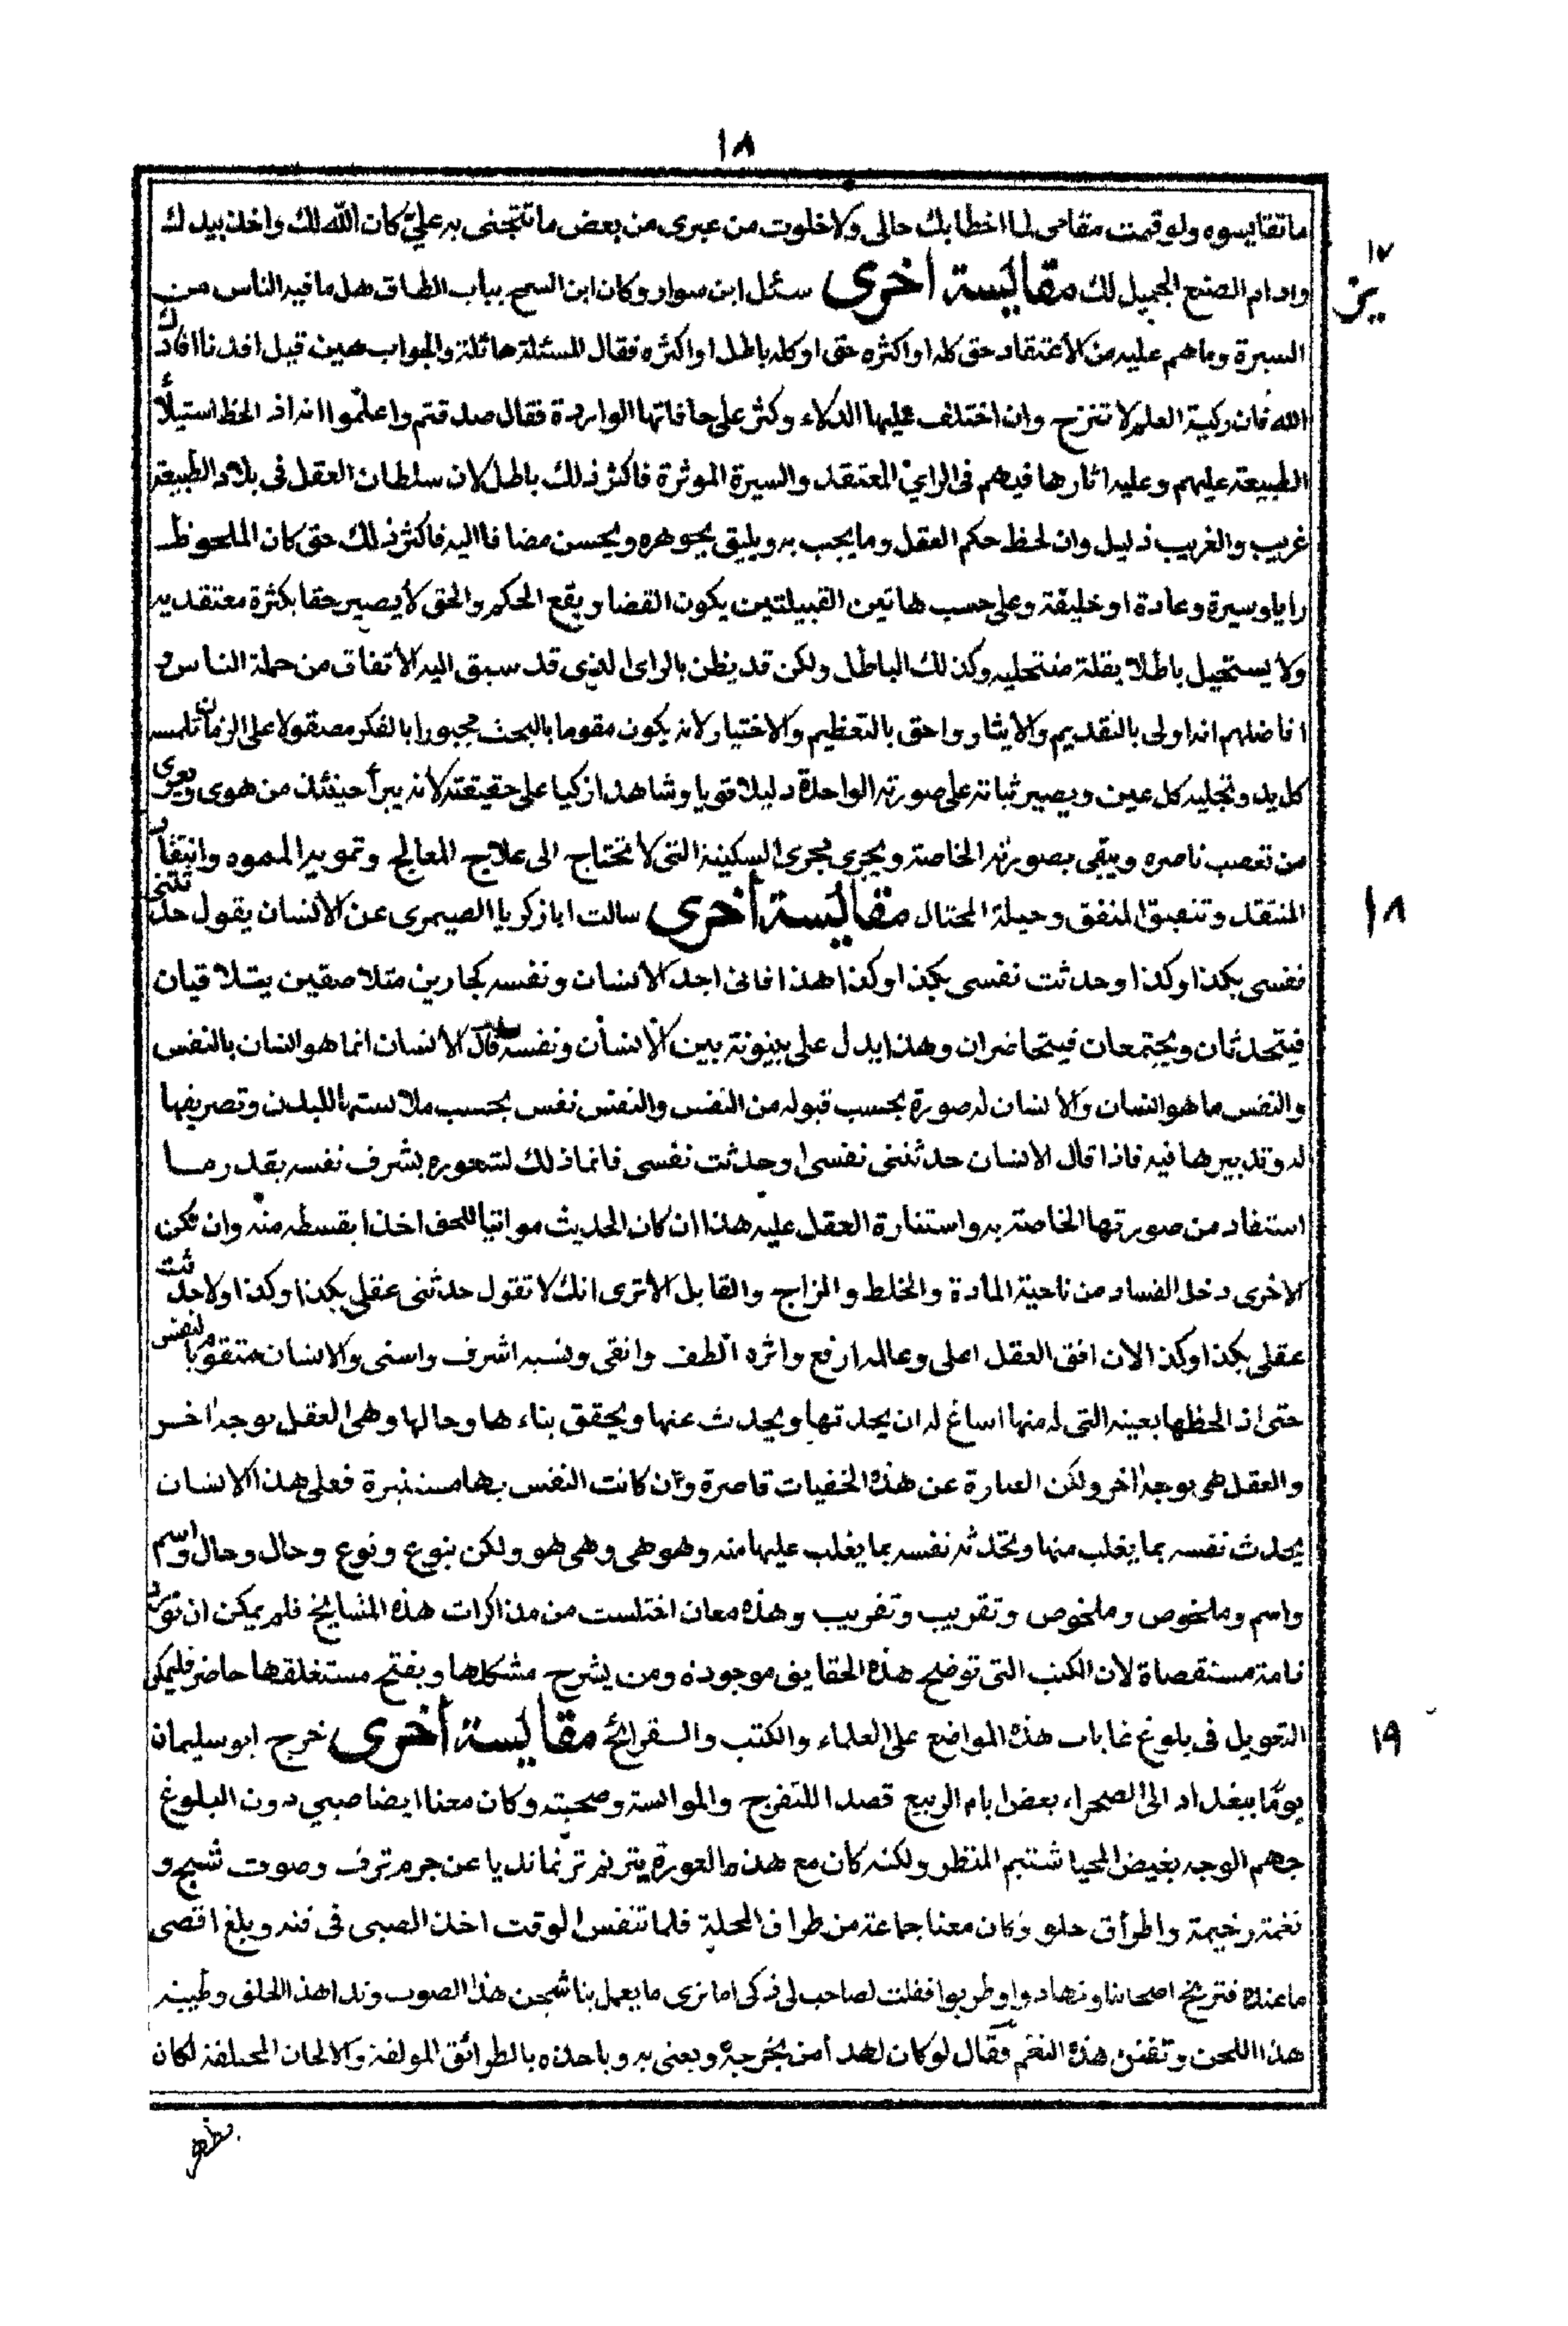 ١٨
ما تقايسوه ولو قمت مقامى لما اخطا بك حالى ولا خلوت من عبرى من بعض ما تتجنى به علىّ كان الله لك واخذ بيدك
١٧
وادام الصنع الجميل لك مقايسة اخرى سئل ابن سوار وكان ابن السمح بباب الطاق هل ما فيه الناس من
يز
السيرة وما هم عليه من الاعتقاد حق كله او اكثره حق او كله باطل او اكثره فقال المسئلة هائلة والجواب هين قيل افدنا افادك
الله فان ركية العلم لا تنزح وان اختلف عليها الدلاء وكثر على حافاتها الواردة فقال صدقتم واعلموا انه اذ الحظ استيلأ
الطبيعة عليهم وعليه اثارها فيهم فى الراى المعتقد والسيرة الموثرة فاكثر ذلك باطل لان سلطان العقل فى بلاد الطبيعة
غريب والغريب ذليل وان لحظ حكم العقل وما يجب به ويليق بجوهره ويحسن مضافا اليه فاكثر ذلك حق كان الملحوظ
رايا وسيرة وعادة او خليقة وعلى حسب هاتين القبيلتين يكون القضا ويقع الحكم والحق لا يصير حقا بكثرة معتقديه
ولا يستحيل باطلا بقلة منتحليه وكذلك الباطل ولكن قد يظن بالراى الذى قد سبق اليه الاتفاق من جملة الناس و
افاضلهم انه اولى بالتقديم والايثار واحق بالتعظيم والاختيار لانه يكون مقوما بالبحث مجبورا بالفكر مصقولا على الزمان تلمسه
كل يد وتجليه كل عين ويصير ثباته على صورته الواحدة دليلا قويا وشاهدا زكيا على حقيقته لانه يبرأ حينئذ من هوى ويعرى
من تعصب ناصره ويبقى بصورته الخاصة ويجرى مجرى السكينة التى لا تحتاج الى علاج المعالج وتمويه المموه وانتقاد
المنتقد وتنعيق المنفق وحيلة المحتال مقايسة اخرى سالت ابا زكريا الصيمرى عن الانسان يقول حدثتنى
١٨
نفسى بكذا وكذا وحدثت نفسى بكذا وكذا هذا فانى اجد الانسان ونفسه كجارين متلاصقين يتلاقيان
فيتحدثان ويجتمعان فيتحاضران وهذا يدل على بينونة بين الانسان ونفسه فقال الانسان انما هو انسان بالنفس
والنفس ما هو انسان والانسان له صورة بحسب قبوله من النفس والنفس نفس بحسب ملابستها للبدن وتصريفها
له وتدبيرها فيه فاذا قال الانسان حدثتنى نفسى وحدثت نفسى فانما ذلك لشعوره بشرف نفسه بقدر ما
استفاد من صورتها الخاصة به واستنارة العقل عليه هذا ان كان الحديث مواتيا للحق اخذا بقسطه منه وان تكن
الاخرى دخل الفساد من ناحية المادة والخلط والمزاج والقابل الا ترى انك لا تقول حدثنى عقلى بكذا وكذا ولا حدثت
عقلى بكذا وكذا لان افق العقل اعلى وعالمه ارفع واثره الطف وانقى ونسبه اشرف واسنى والانسان متقوما بالنفس
حتى اذ الحظها بعينه التى له منها اساغ له ان يحدثها ويحدث عنها ويحقق بناءها وحالها وهى العقل بوجه اخر
والعقل هى بوجه اخر ولكن العبارة عن هذه الخفيات قاصرة وان كانت النفس بها مستنيرة فعلى هذا الانسان
يحدث نفسه بما يغلب منها وتحدثه نفسه بما يغلب عليها منه وهو هى وهى هو ولكن بنوع ونوع وحال وحال واسم
واسم وملخوص وملخوص وتقريب وتقريب وهذه معان اختلست من مذاكرات هذه المشايخ فلم يمكن ان تورد
تامة مستقصاة لان الكتب التى توضح هذه الحقايق موجودة ومن يشرح مشكلها ويفتح مستغلقها حاضر فليكن
التعويل فى بلوغ غايات هذه المواضع على العلماء والكتب والقرائح مقايسة اخرى خرج ابو سليمان
١٩
يومًا ببغداد الى الصحراء بعض ايام الربيع قصدا للتفرج والموانسة وصحبته وكان معنا ايضا صبى دون البلوغ
جهم الوجه بغيض المحيا شتيم المنظر ولكنه كان مع هذه العورة يترنم ترنما نديا عن جرم ترف وصوت شج و
نغمة رخيمة واطراق حلو وكان معنا جماعة من طراف المحلة فلما تنفس الوقت اخذ الصبى فى فنه وبلغ اقصى
ما عنده فترنح اصحابنا وتهادوا وطربوا فقلت لصاحب لى ذكى اما ترى ما يعمل بنا شجن هذا الصوت وندا هذا الحلق وطيب
هذا اللحن وتفنن هذه النغم فقال لو كان لهذا من يخرجه ويعنى به وياخذه بالطرائق المولفة والالحان المختلفة لكان
يظهر